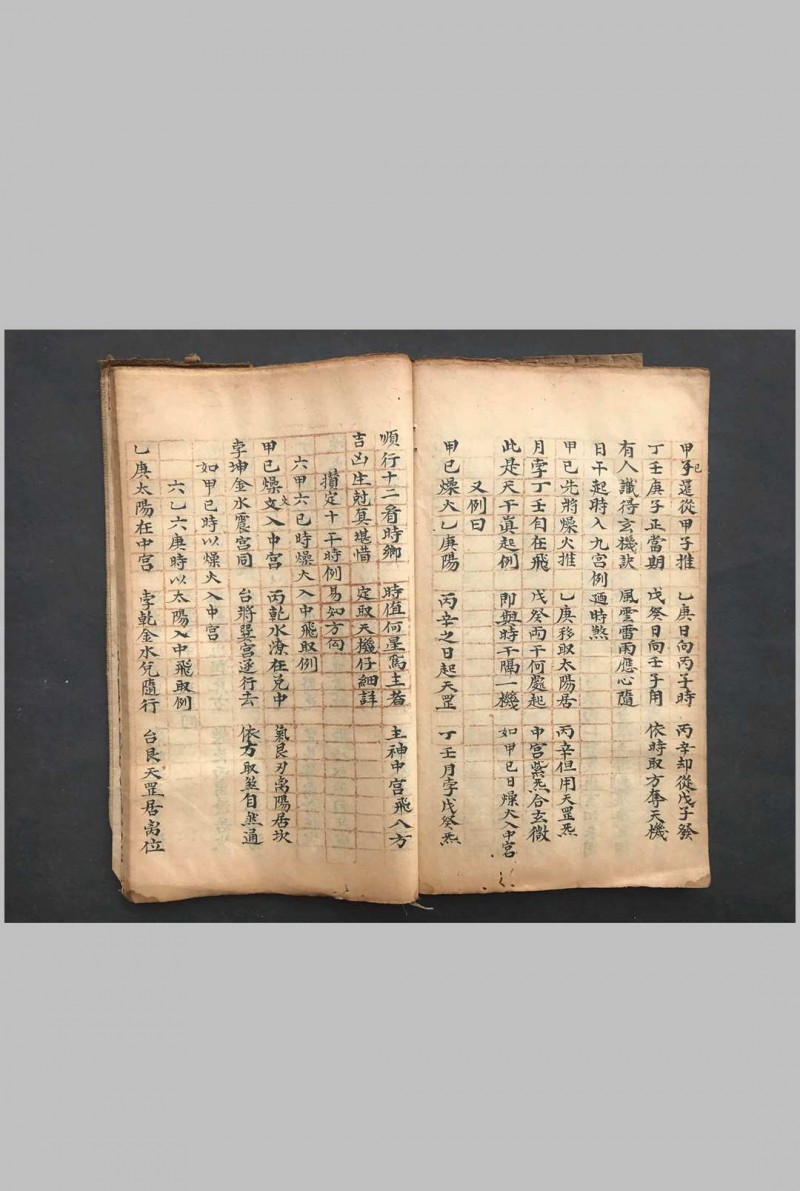 甲己還從甲子推 乙庚日向丙子時 丙辛却從戊子發
丁壬庚子正當期 戊癸日向壬子用 依時取方奪天機
有人識得玄機訣 風雲雷雨應心隨
日午起時入九宮例 遁時煞
甲己先將燥火推 乙庚移取太陽居 丙辛但用天罡炁
月孛丁壬自在飛 戊癸兩干何處起 中宮紫炁合玄微
此是天干眞起例 即與時干隔一機 如甲己日燥火入中宮
又例曰
甲己燥火乙庚陽 丙辛之日起天罡 丁壬月孛戊癸炁
順行十二看時鄉 時值何星為主者 主神中宮飛八方
吉凶生尅真堪惜 定取天機仔細詳
攢定十干時例 易如方向
六甲六己時燥火入中飛取例
甲己燥文火入中宮 丙乾水潦在兌中 氣艮刃离陽居坎
孛坤金水震宮同 台將巽宮逐行去 依方取煞自然通
如甲己時以燥火入中宮
六乙六庚時以太陽入中飛取例
乙庚太陽在中宮 孛乾金水兌隨行 台艮天罡居离位